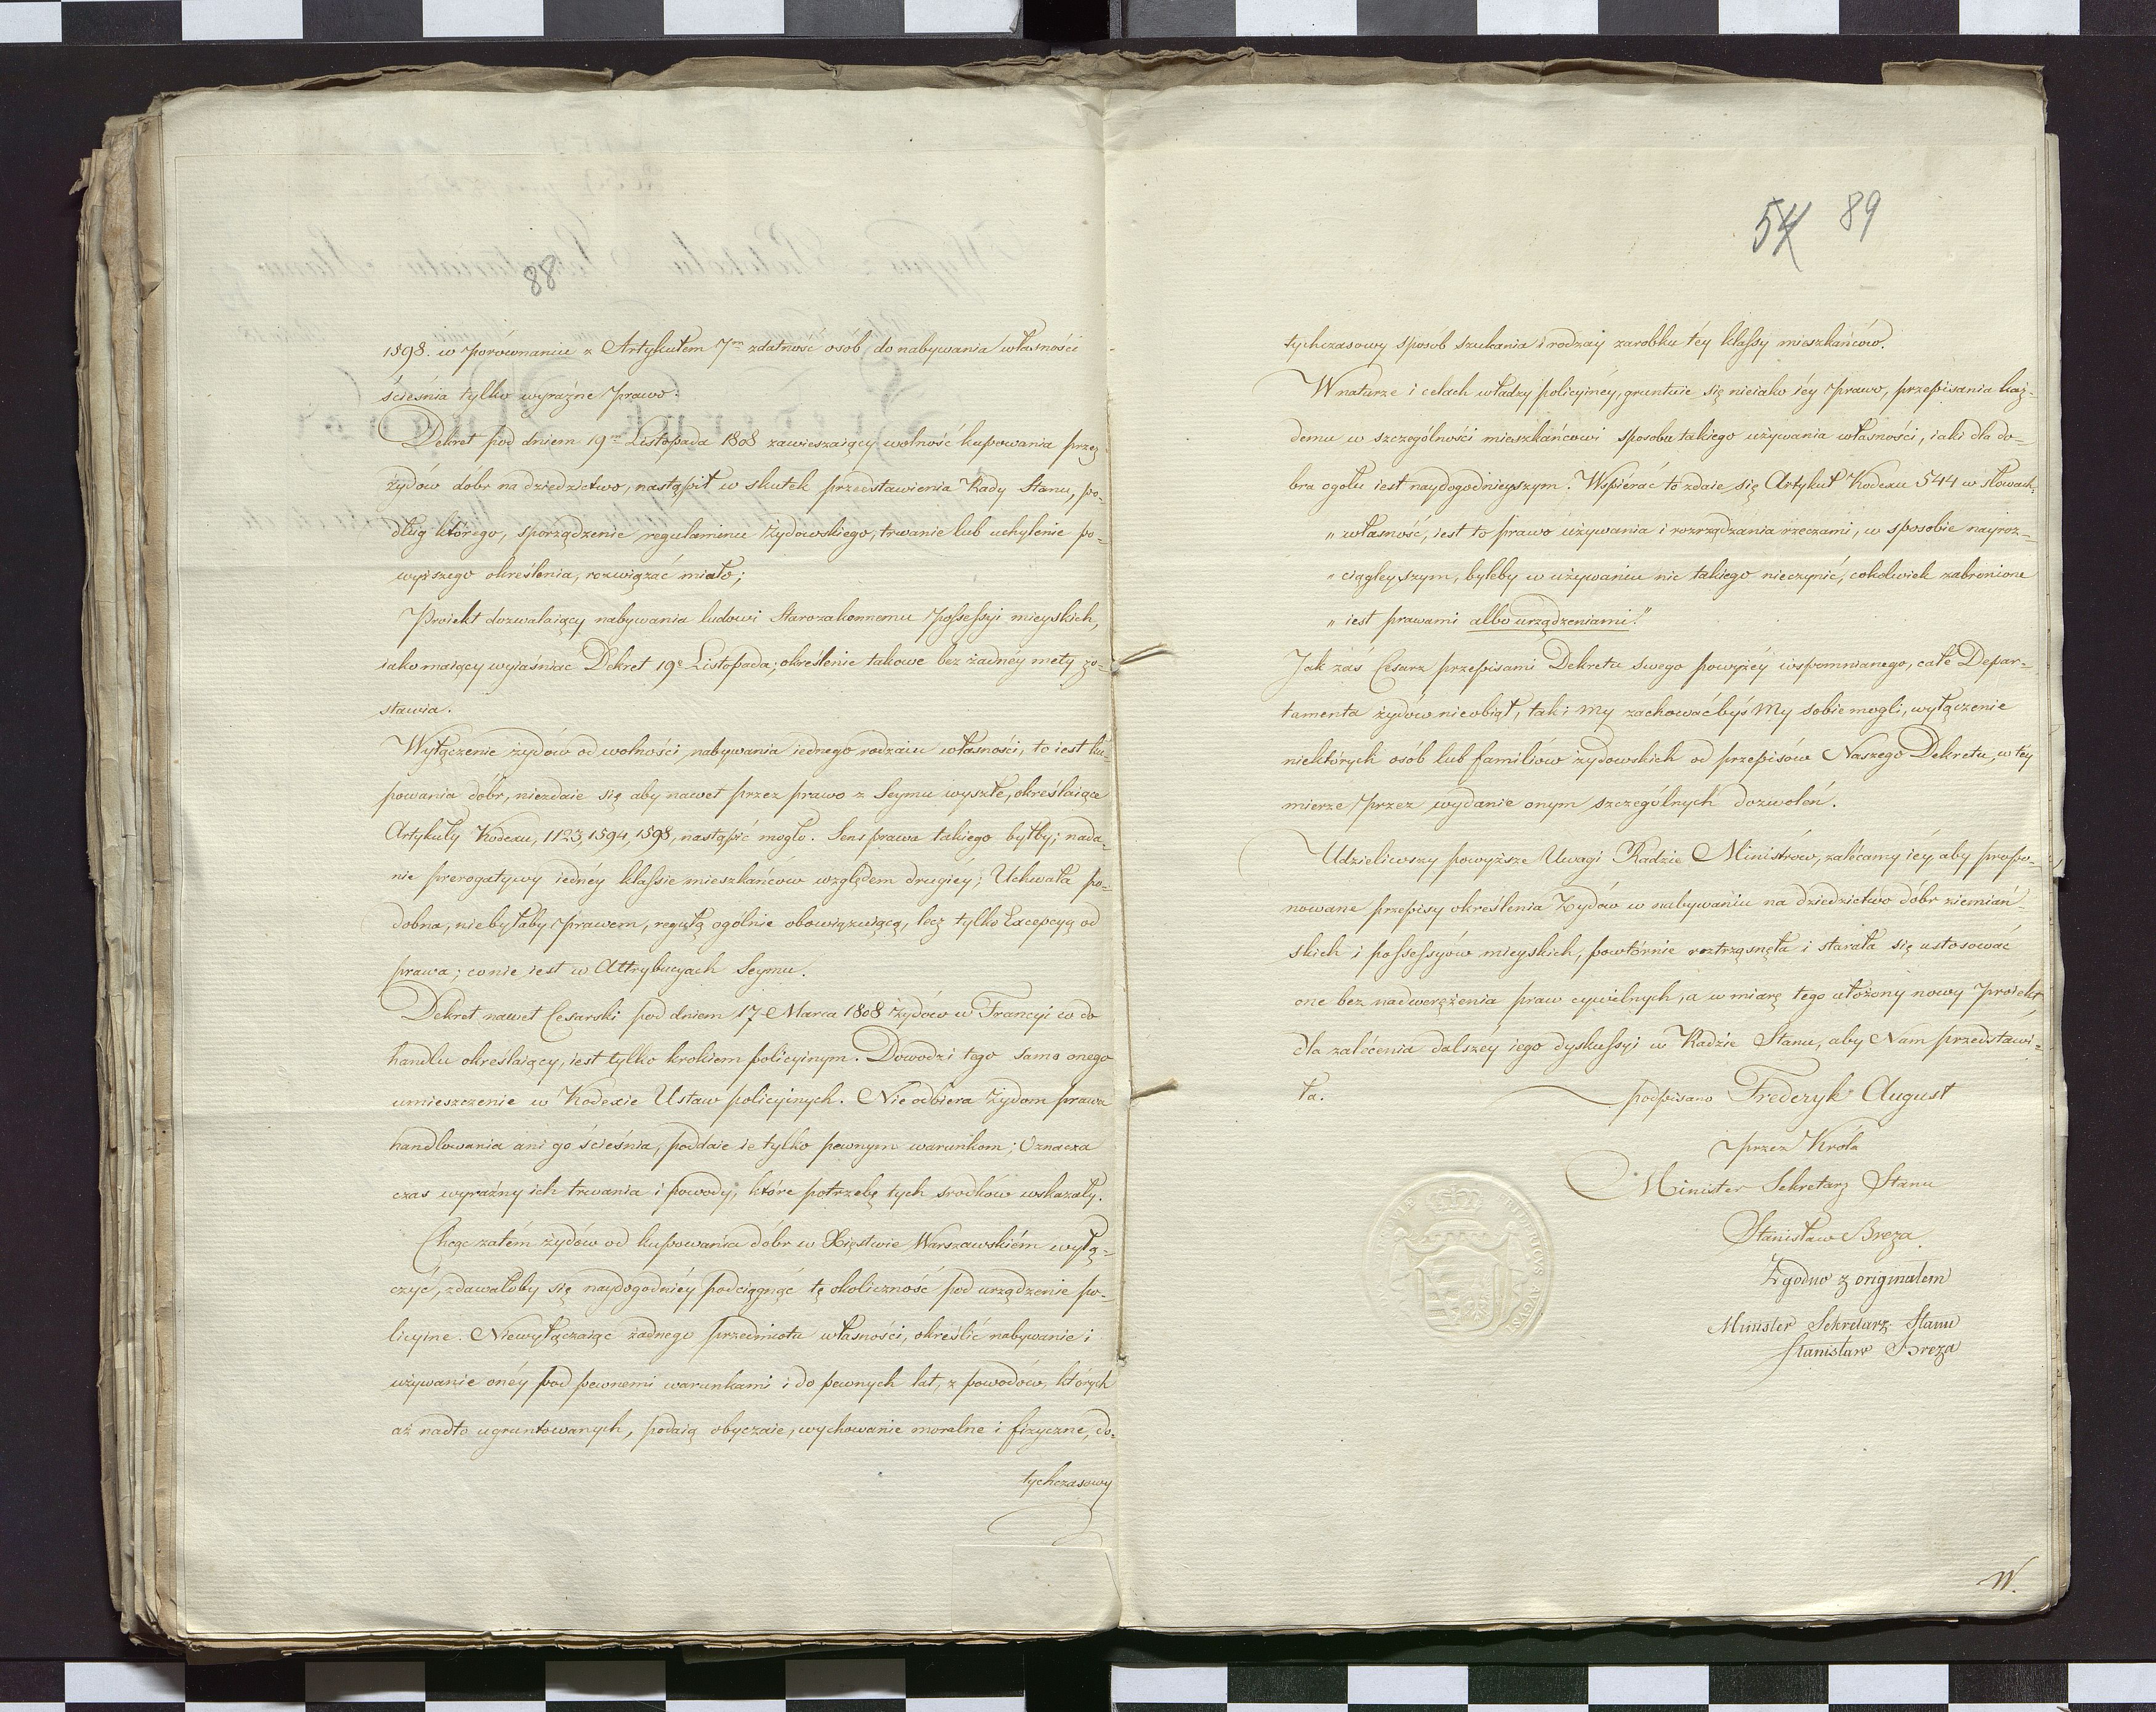 88
1598. w porównaniu z Artykułem 7m zdatność osób do nabywania własności
ścieśnia tylko wyraźne prawo.
Dekret pod dniem 19m Listopada 1808 zawieszaiący wolność kupowania przez
żydów dóbr na dziedzictwo, nastąpił w skutek przedstawienia Rady Stanu, po=
dług którego, sporządzenie regulaminu żydowskiego, trwanie lub uchylenie po=
wyższego określenia, rozwiązać miało;
Proiekt dozwalaiący nabywania ludowi Starozakonnemu Possessyi mieyskich,
iako maiący wyiaśniać Dekret 19e Listopada; określenie takowe bez żadnéy mety zo=
stawia.
Wyłączenie żydów od wolności nabywania iednego rodzaiu własności, to iest ku=
powania dóbr, niezdaie się aby nawet przez prawo z Seymu wyszłe, określaiące
Artykuły Kodexu, 1123, 1594, 1598, nastąpić mogło. Sens prawa takiego byłby; nada=
nie prerogatywy iednéy klassie mieszkańców względem drugiéy; Uchwała po=
dobna, niebyłaby prawem, regułą ogólnie obowiązuiącą, lecz tylko Excepcyą od
prawa; co nie iest w Attrybucyach Seymu.
Dekret nawet Cesarski pod dniem 17 Marca 1808 żydów w Francyi co do
handlu określaiący, iest tylko krokiem policyinym. Dowodzi tego samo onego
umieszczenie w Kodexie Ustaw policyinych. Nie odbiera żydom prawa
handlowania ani go ścieśnia, poddaie ie tylko pewnym warunkom; Oznacza
czas wyraźny ich trwania i powody, które potrzebę tych srodków wskazały.
Chcąc zatém żydów od kupowania dóbr w Xięstwie Warszawskiém wyłą=
czyć, zdawałoby się naydogodniéy podciągnąć tę okoliczność pod urządzenie po=
licyine. Niewyłączaiąc żadnego przedmiotu własności, określić nabywanie i
używanie onéy pod pewnemi warunkami i do pewnych lat, z powodów, których
aż nadto ugruntowanych, podaią obyczaie, wychowanie moralne i fizyczne, do=
tychczasowy
54 89
tychczasowy sposób szukania i rodzay zarobku téy klassy mieszkańców.
W naturze i celach władzy policyinéy, gruntuie się nieiako iéy prawo, przepisania każ=
demu w szczególności mieszkańcowi sposobu takiego używania własności, iaki dla do=
bra ogółu iest naydogodnieyszym. Wspierać to zdaie się Artykuł Kodexu 544 w słowach:
„ własność, iest to prawo używania i rozrządzania rzeczami, w sposobie nayroz=
„ ciągleyszym, byleby w używaniu nic takiego nieczynić, cokolwiek zabronione
„ iest prawami albo urządzeniami."
Jak zaś Cesarz przepisami Dekretu swego powyżéy wspomnianego, całe Depar=
tamenta żydów nieobiął, tak i My zachowaćbyśMy sobie mogli, wyłączenie
niektórych osób lub familiów żydowskich od przepisów Naszego Dekretu, w téy
mierze przez wydanie onym szczególnych dozwoleń.
Udzieliwszy powyższe Uwagi Radzie Ministrów, zalécamy iéy, aby propo=
nowane przepisy określenia Żydów w nabywaniu na dziedzictwo dóbr ziemiań=
skich i possessyów mieyskich, powtórnie roztrząsnęła i starała się ustosować
one bez nadwerężenia praw cywilnych, a w miarę tego ułożony nowy Proiekt
dla zalécenia dalszéy iego dyskussyi w Radzie Stanu, aby Nam przedstawi=
ła.
podpisano Frederyk August
przez Króla
Minister Sekretarz Stanu
Stanisław Breza.
Zgodno z originałem
Minister Sekretarz Stanu
Stanisław Breza
W.